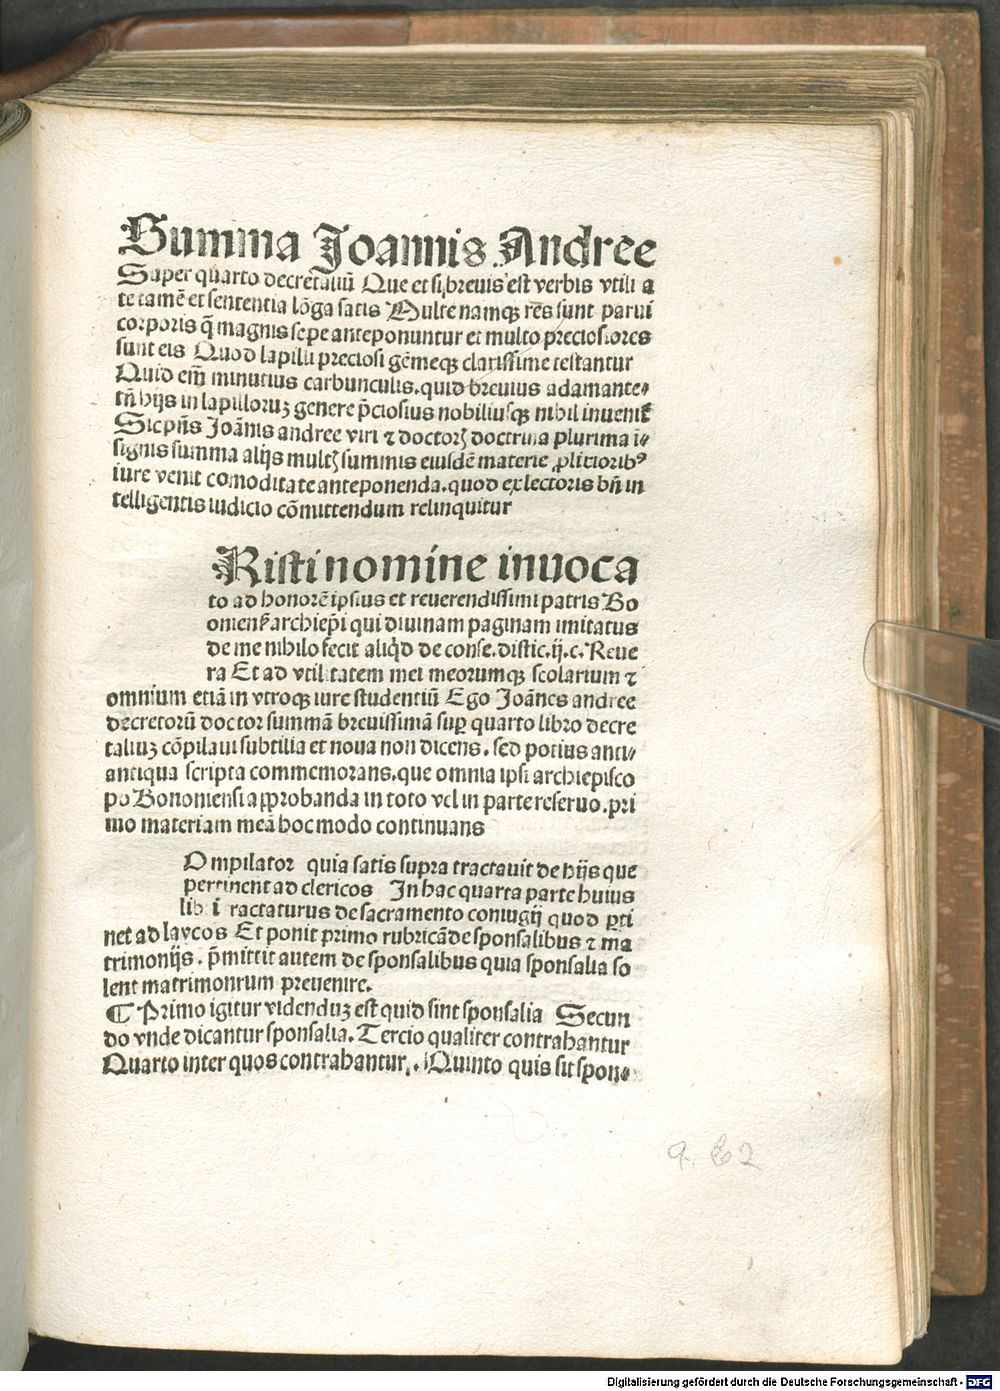 Summa Joannis Andree
Super quarto decretaliū Que et si breuis est verbis vtili a
te tamē et sententia lōga satis Multe namqꝫ res sunt parui
corporis q̄ magnis sepe anteponuntur et multo preciosiores
sunt eis Quod lapilli preciosi gēmeqꝫ clarissime testantur
Quid em̄ minutius carbunculis. quid breuius adamante.
tn̄ hijs in lapilloruꝫ genere p̄ciosius nobiliusqꝫ nihil inuenit̉
Sic pn̄s Joānis andree viri ⁊ doctoꝝ doctrina plurima i⸗
signis summa alijs multꝭ summis eiusdē materie ꝓlixiorib⁹
iure venit comoditate anteponenda. quod ex lectoris bn̄ in
telligentis iudicio cōmittendum relinquitur
Risti nomine inuoca
to ad honorē ipsius et reuerendissimi patris Bo
noniens̄ archiep̄i qui diuinam paginam imitatus
de me nihilo fecit aliq̇d de conse. distic. ij. c. Reue
ra Et ad vtilitatem mei meorumqꝫ scolarium ⁊
omnium etiā in vtroqꝫ iure studentiū Ego Joānes andree
decretorū doctor summā breuissimā suꝑ quarto libro decre
taliuꝫ cōpilaui subtilia et noua non dicens. sed potius anti⸗
antiqua scripta commemorans. que omnia ipsi archiepisco
po Bononiensi apꝓbanda in toto vel in parte reseruo. pri
mo materiam meā hoc modo continuans
Ompilator quia satis supra tractauit de hijs que
pertinent ad clericos In hac quarta parte huius
lib i ractaturus de sacramento coniugij quod ꝑti
net ad laycos Et ponit primo rubricā de sponsalibus ⁊ ma
trimonijs. p̄mittit autem de sponsalibus quia sponsalia so
lent matrimonium preuenire.
¶ Primo igitur videnduꝫ est quid sint sponsalia Secun
do vnde dicantur sponsalia. Tercio qualiter contrahantur
Quarto inter quos contrahantur. Quinto quis sit spon⸗
Digitalisierung gefördert durch die Deutsche Forschungsgemeinschaft - DFG